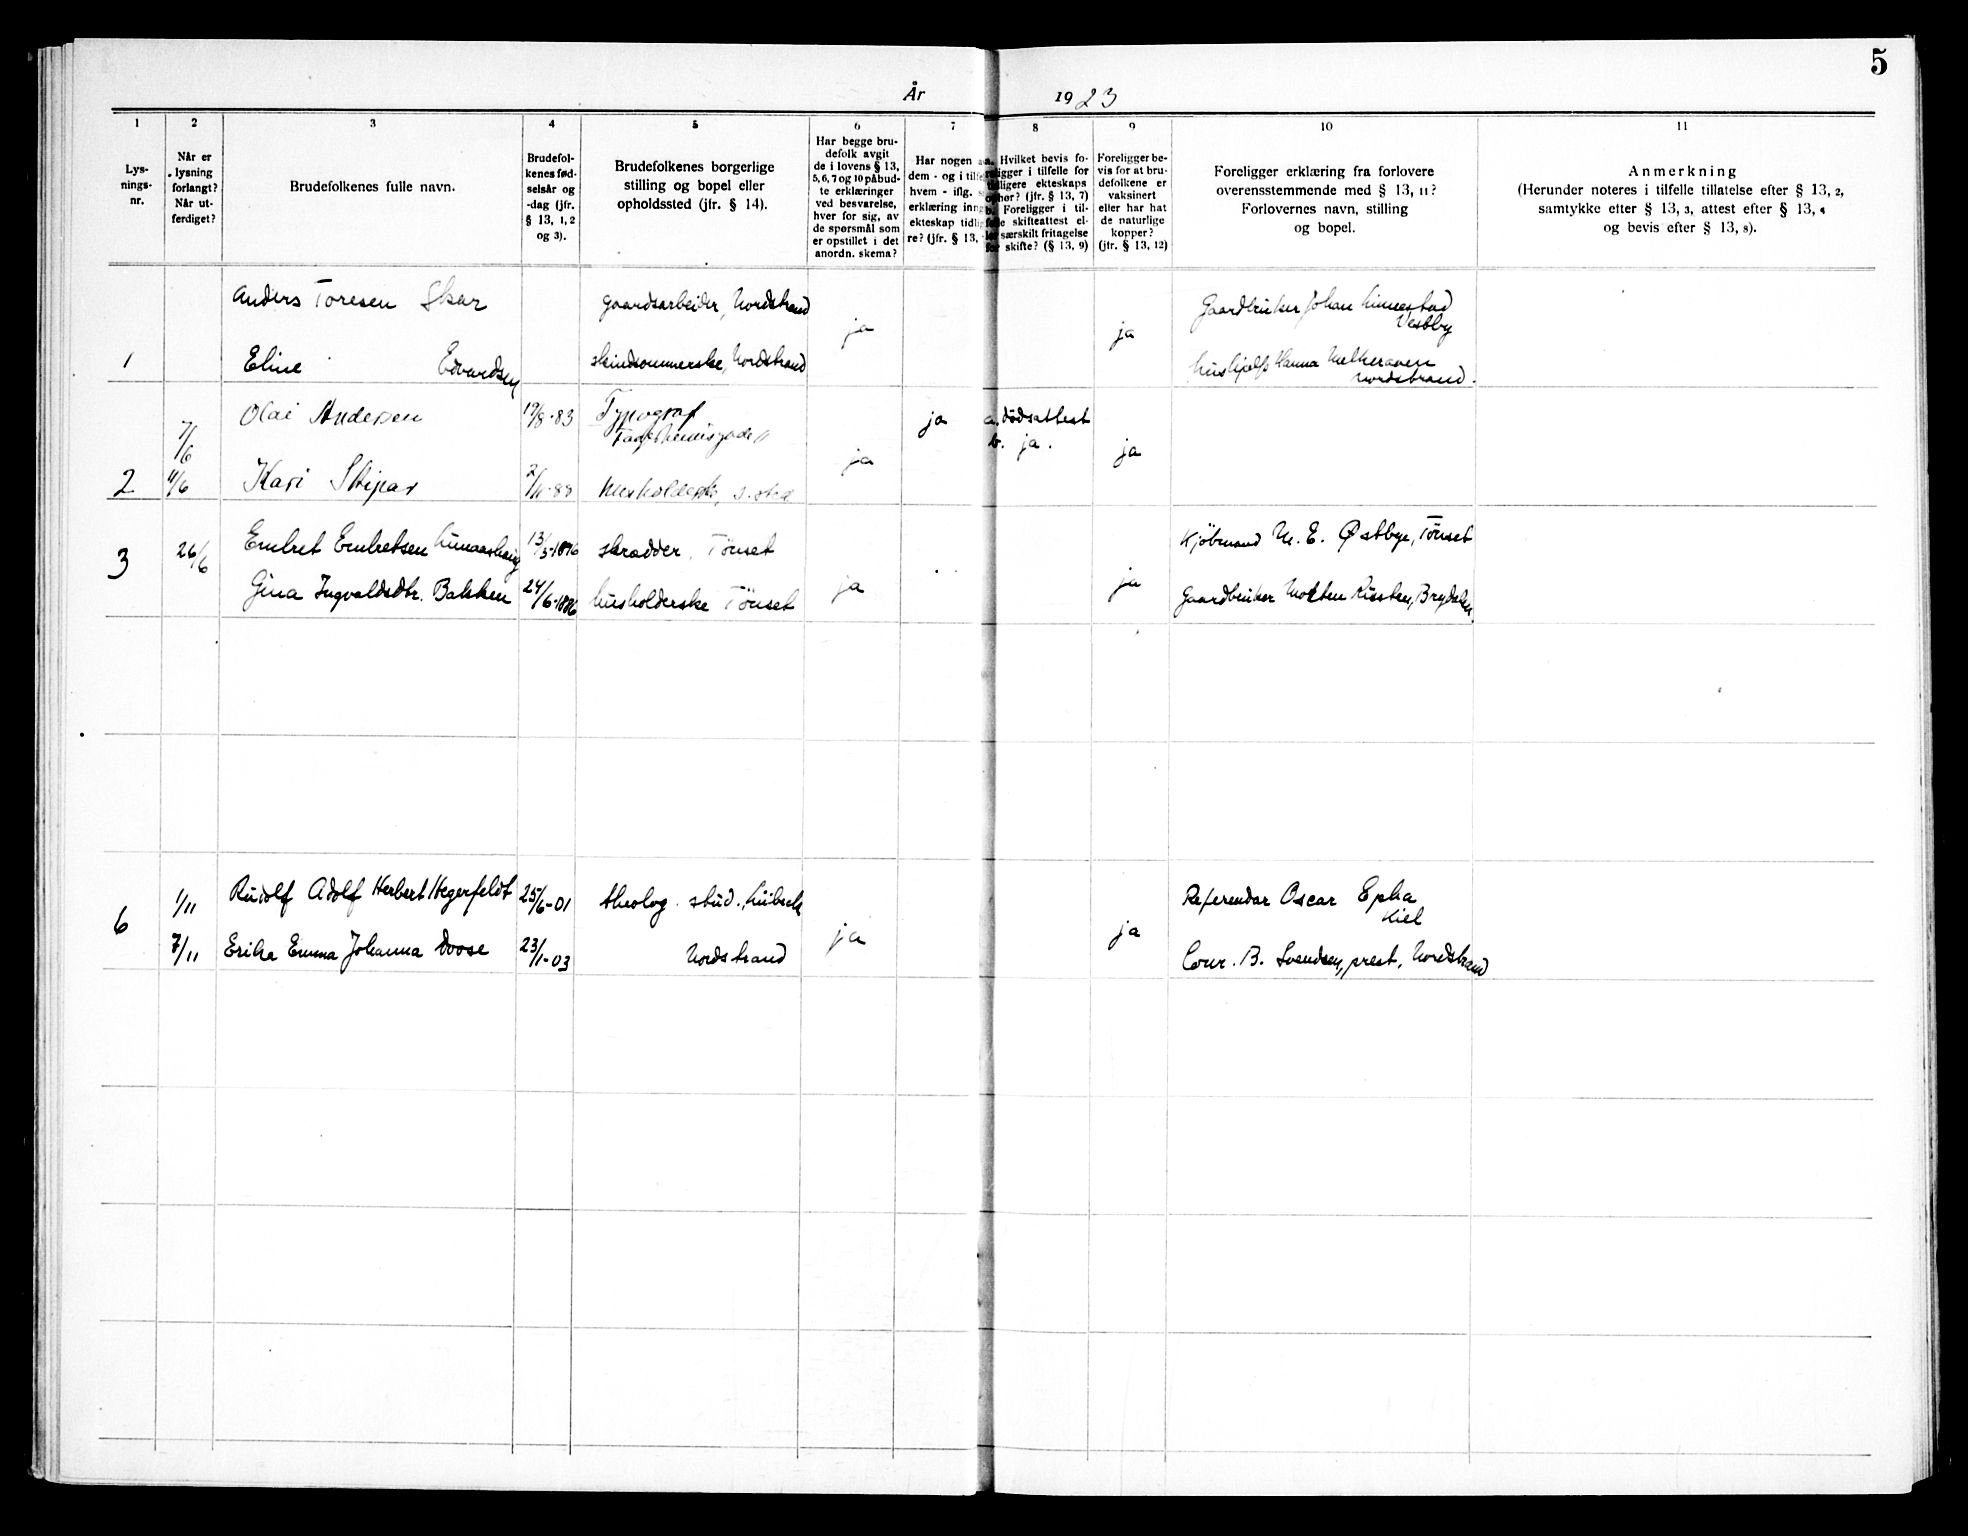 5
År 1923
1 2 3 4 5 6 7 8 9 10 11
Lys-
nings-
nr.
Når er
lysning
forlangt?
Når ut-
ferdiget?
Brudefolkenes fulle navn.
Brudefol-
kenes fød-
selsår og
-dag (jfr.
§ 13, 1, 2
og 3).
Brudefolkenes borgerlige
stilling og bopel eller
opholdssted (jfr. § 14).
Har begge bru-
defolk avgit
de i lovens § 13,
5, 6, 7 og 10 påbud-
te erklæringer
ved besvarelse,
hver for sig, av
de spørsmål som
er opstillet i det
anordn. skema?
Har nogen a
dem - og i tilf
hvem - iflg.
erklæring inng
ekteskap tidli
re? (jfr. § 13,
a. Hvilket bevis fo-
religger i tilfelle for
tidligere ekteskaps
ophør? (jfr. § 13, 7)
b. Foreligger i til-
felle skifteattest el-
ler særskilt fritagelse
for skifte? (§ 13, 9)
Foreligger be-
vis for at bru-
defolkene er
vaksinert
eller har hat
de naturlige
kopper?
(jfr. § 13, 12)
Foreligger erklæring fra forlovere
overensstemmende med § 13, 11?
Forlovernes navn, stilling
og bopel.
Anmerkning
(Herunder noteres i tilfelle tillatelse efter § 13, 2,
samtykke efter § 13, 3, attest efter § 13, 4
og bevis efter § 13, 8).
Anders Toresen Skar gaardsarbeider, Nordstrand
Gaardbruker Johan
Vestby
1 Eline Edvardsen skindsømmerske, Nordstrand ja ja
hushjelp Hanna
Nordstrand.
Olai Andersen 19/8-83 Typograf
7/6 ja a. dødsattest
b. ja.
2 11/6 Kari Skipar 2/11-88 husholderske, s. sted ja ja
3 26/6 Embret Embretsen 13/5-1876 skrædder, Tönset
Kjöbmand M. E. Østbye, Tönset
Gina Ingvaldsdtr. Bakken 24/6-1886 husholderske Tönset ja ja
Gaardbruker Morten
6 1/11 Rudolf Adolf Herbert Hegerfeldt 25/6-01 theolog. stud., Lübeck
Referendar Oscar Epha
Kiel
7/11 Erika Emma Johanna Doose 23/1-03 Nordstrand ja ja
Conr. B. Svendsen, prest, Nordstrand